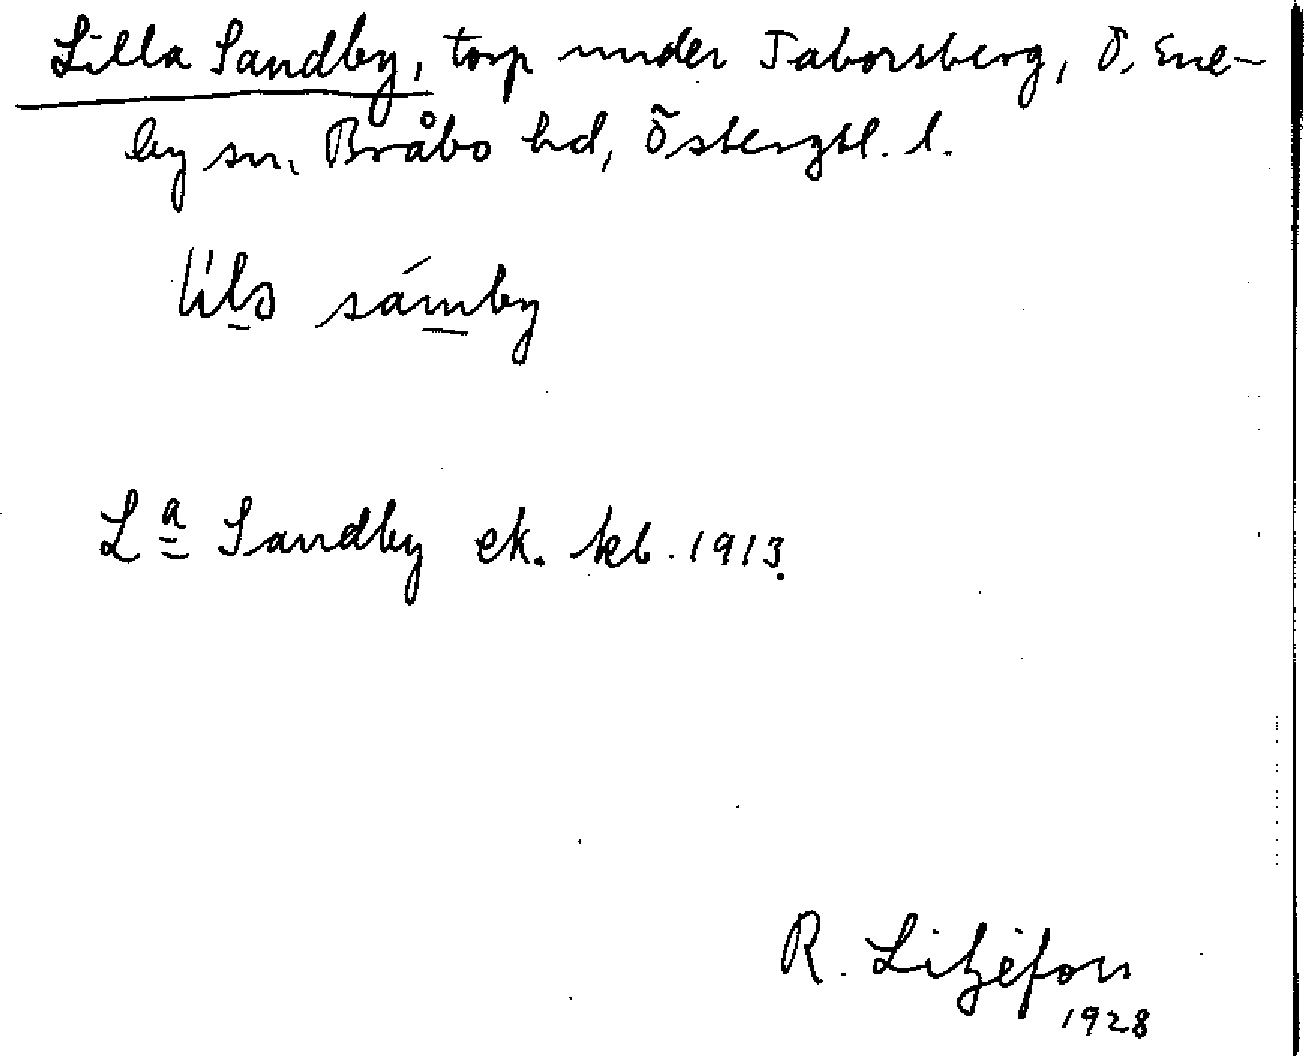 Lilla Sandby, torp under Taborsberg, Ö. Ene-
by sn. Bråbo hd, Östergtl. l.
sámby
Lª Sandby ek. kb. 1913.
R. Liljefors
1928